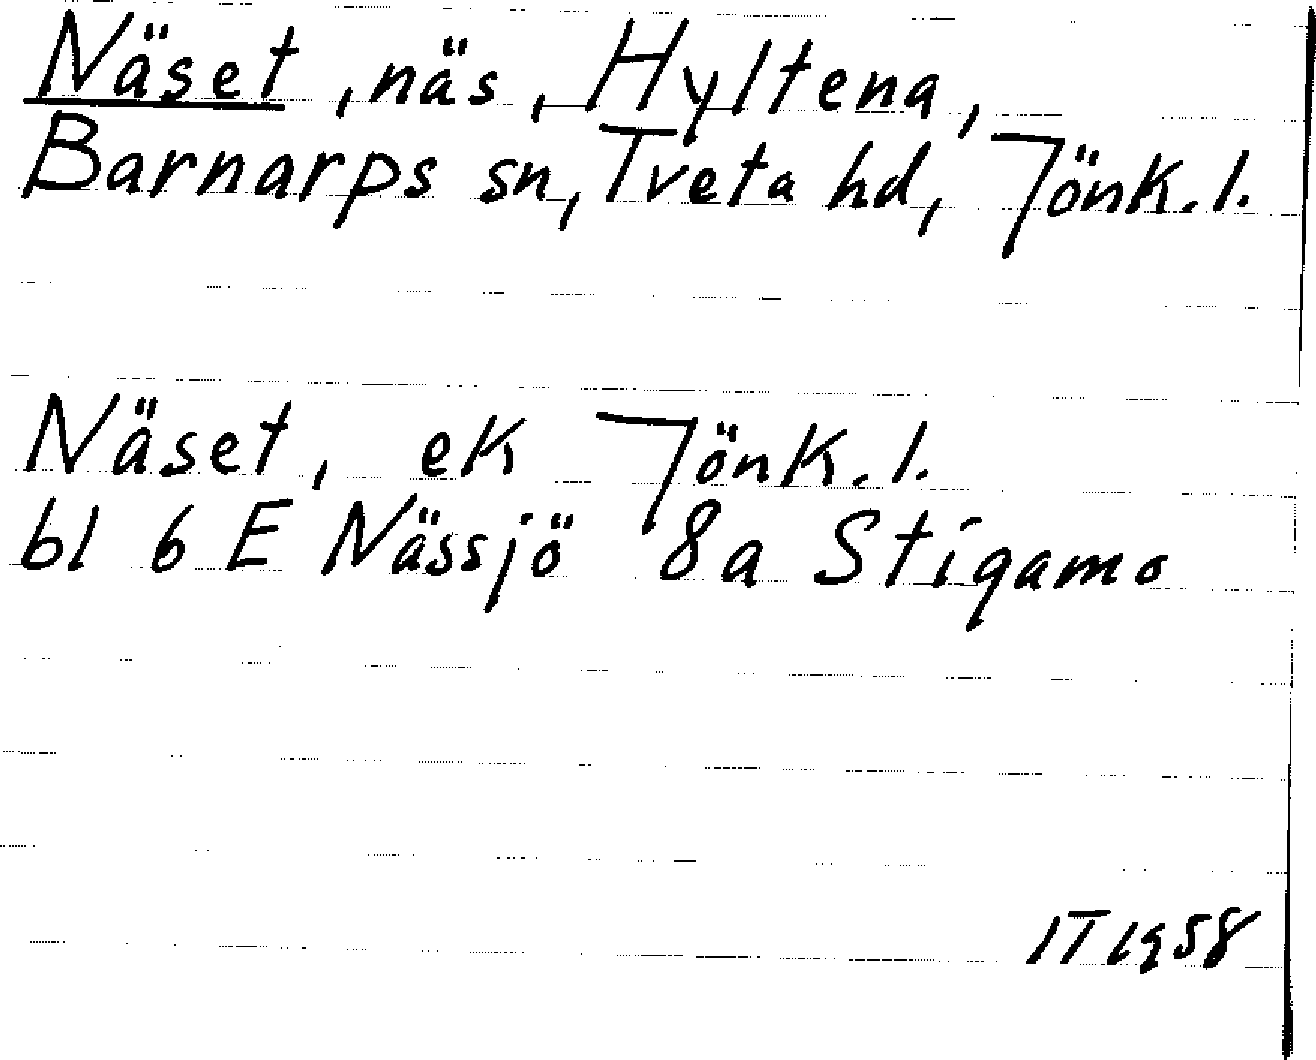 Näset, näs, Hyltena,
Barnarps sn, Tveta hd, Jönk. l.
Näset, ek Jönk. l.
bl 6 E Nässjö 8a Stigamo
IT 1958